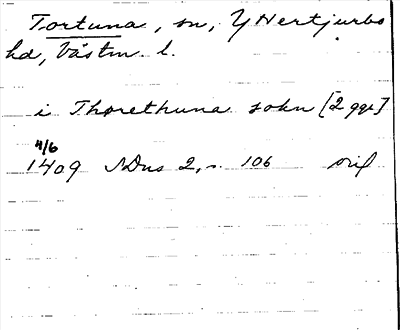 Tortuna, sn, Y Hertjurbo
hd, Västm. l.
i Thorethuna sokn [2 ggr]
4/6
1409 SDns 2, s. 106 orig